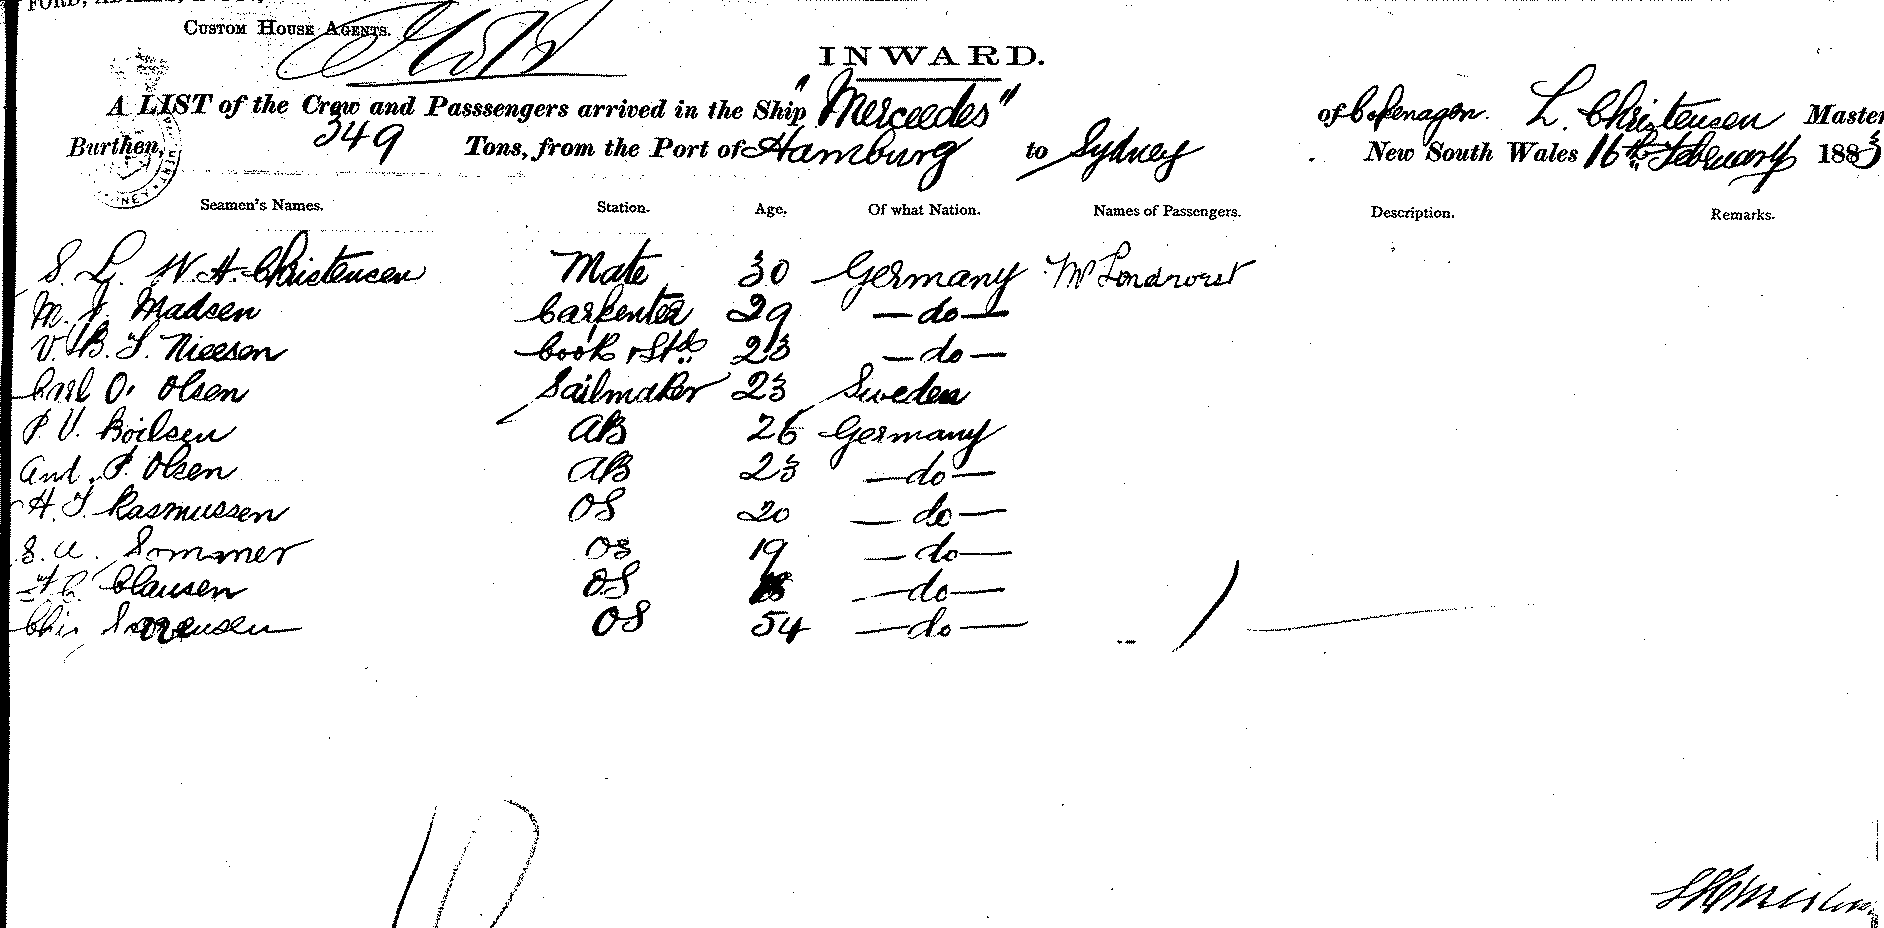 CUSTOM HOUSE AGENTS.
INWARD.
A LIST of the Crew and Passsengers arrived in the Ship "Mercedes" of Copenagen. L. Christensen Master
Burthen, 349 Tons, from the Port of Hamburg to Sydney New South Wales 16th February 1883
Seamen's Names. Station. Age. Of what Nation. Names of Passengers. Description. Remarks.
S. L. W. H. Christensen Mate 30 Germany Mr
M. J. Madsen Carpenter 29 — do —
V. B. T. Nielsen Cook & Std 23 — do —
Carl O. Olsen Sailmaker 23 Sweden
P. V. Boilsen AB 26 Germany
And. P. Olsen AB 23 — do —
H. J. Rasmussen OS 20 — do —
S. A. Sommer OS 19 — do —
Clausen OS — do —
Chis Sorensen OS 54 — do —
1
10